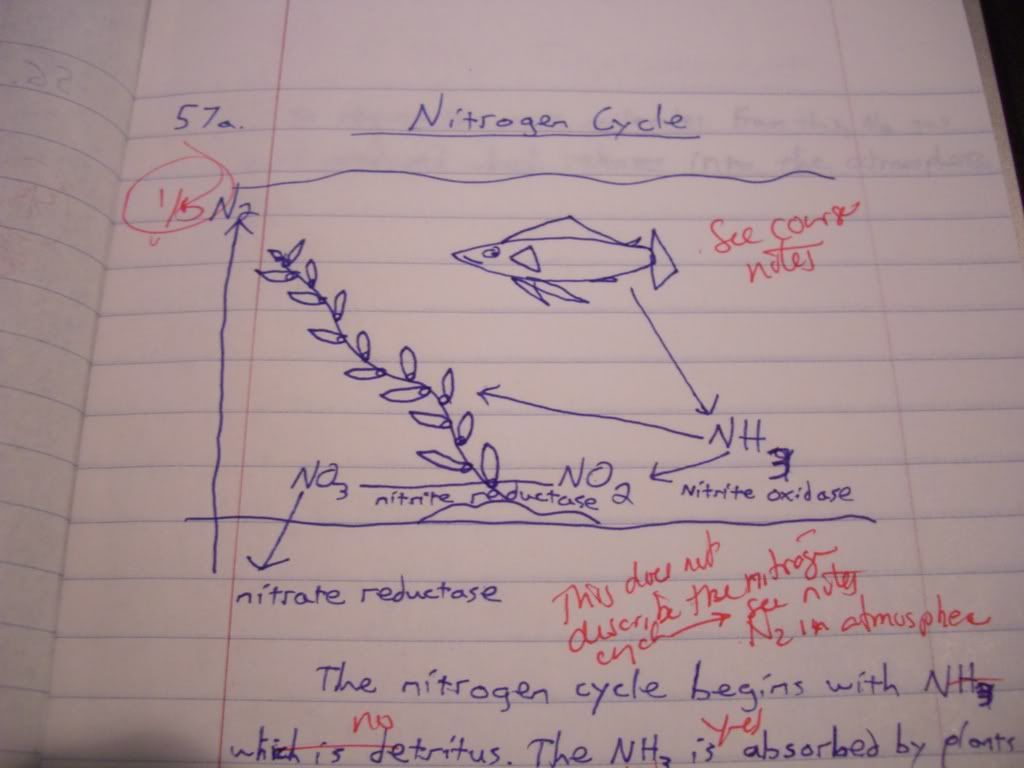 57a. Nitrogen Cycle
1/5 N2
See course
notes
NH3
NO3 NO2
nitrite reductase Nitrite oxidase
nitrate reductase
This does not
describe the nitrogen
cycle → see notes
N2 in atmosphere
The nitrogen cycle begins with NH3
no yes
which is detritus. The NH3 is absorbed by plants